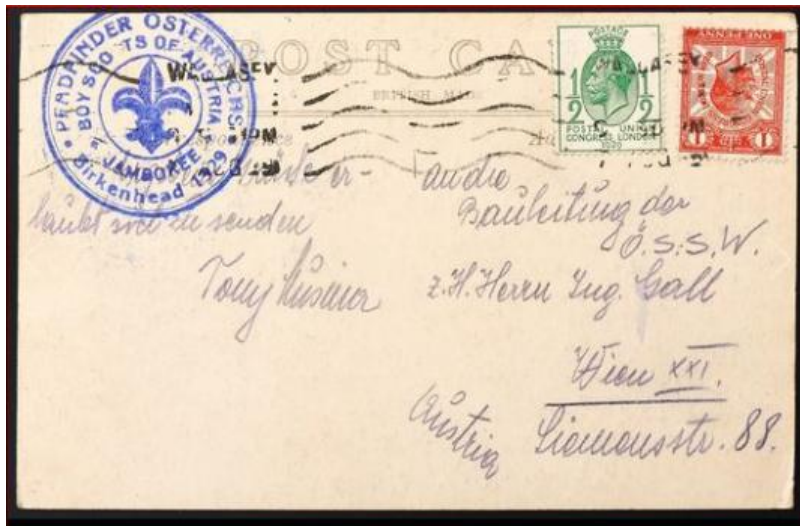 PFADFINDER ÖSTERREICHS
BOY SCOUTS OF AUSTRIA
JAMBOREE
Birkenhead 1929
POST CA
BRITISH MADE
WALLASEY
POSTAGE
1/2 1/2
POSTAL UNION
CONGRESS, LONDON
1929
ONE PENNY
1 1
er-
laubt sich zu senden
Tony
an die
Bauleitung der
Ö.S.S.W.
z.H. Herrn Ing. Gall
Wien XXI.
Siemensstr. 88.
Austria